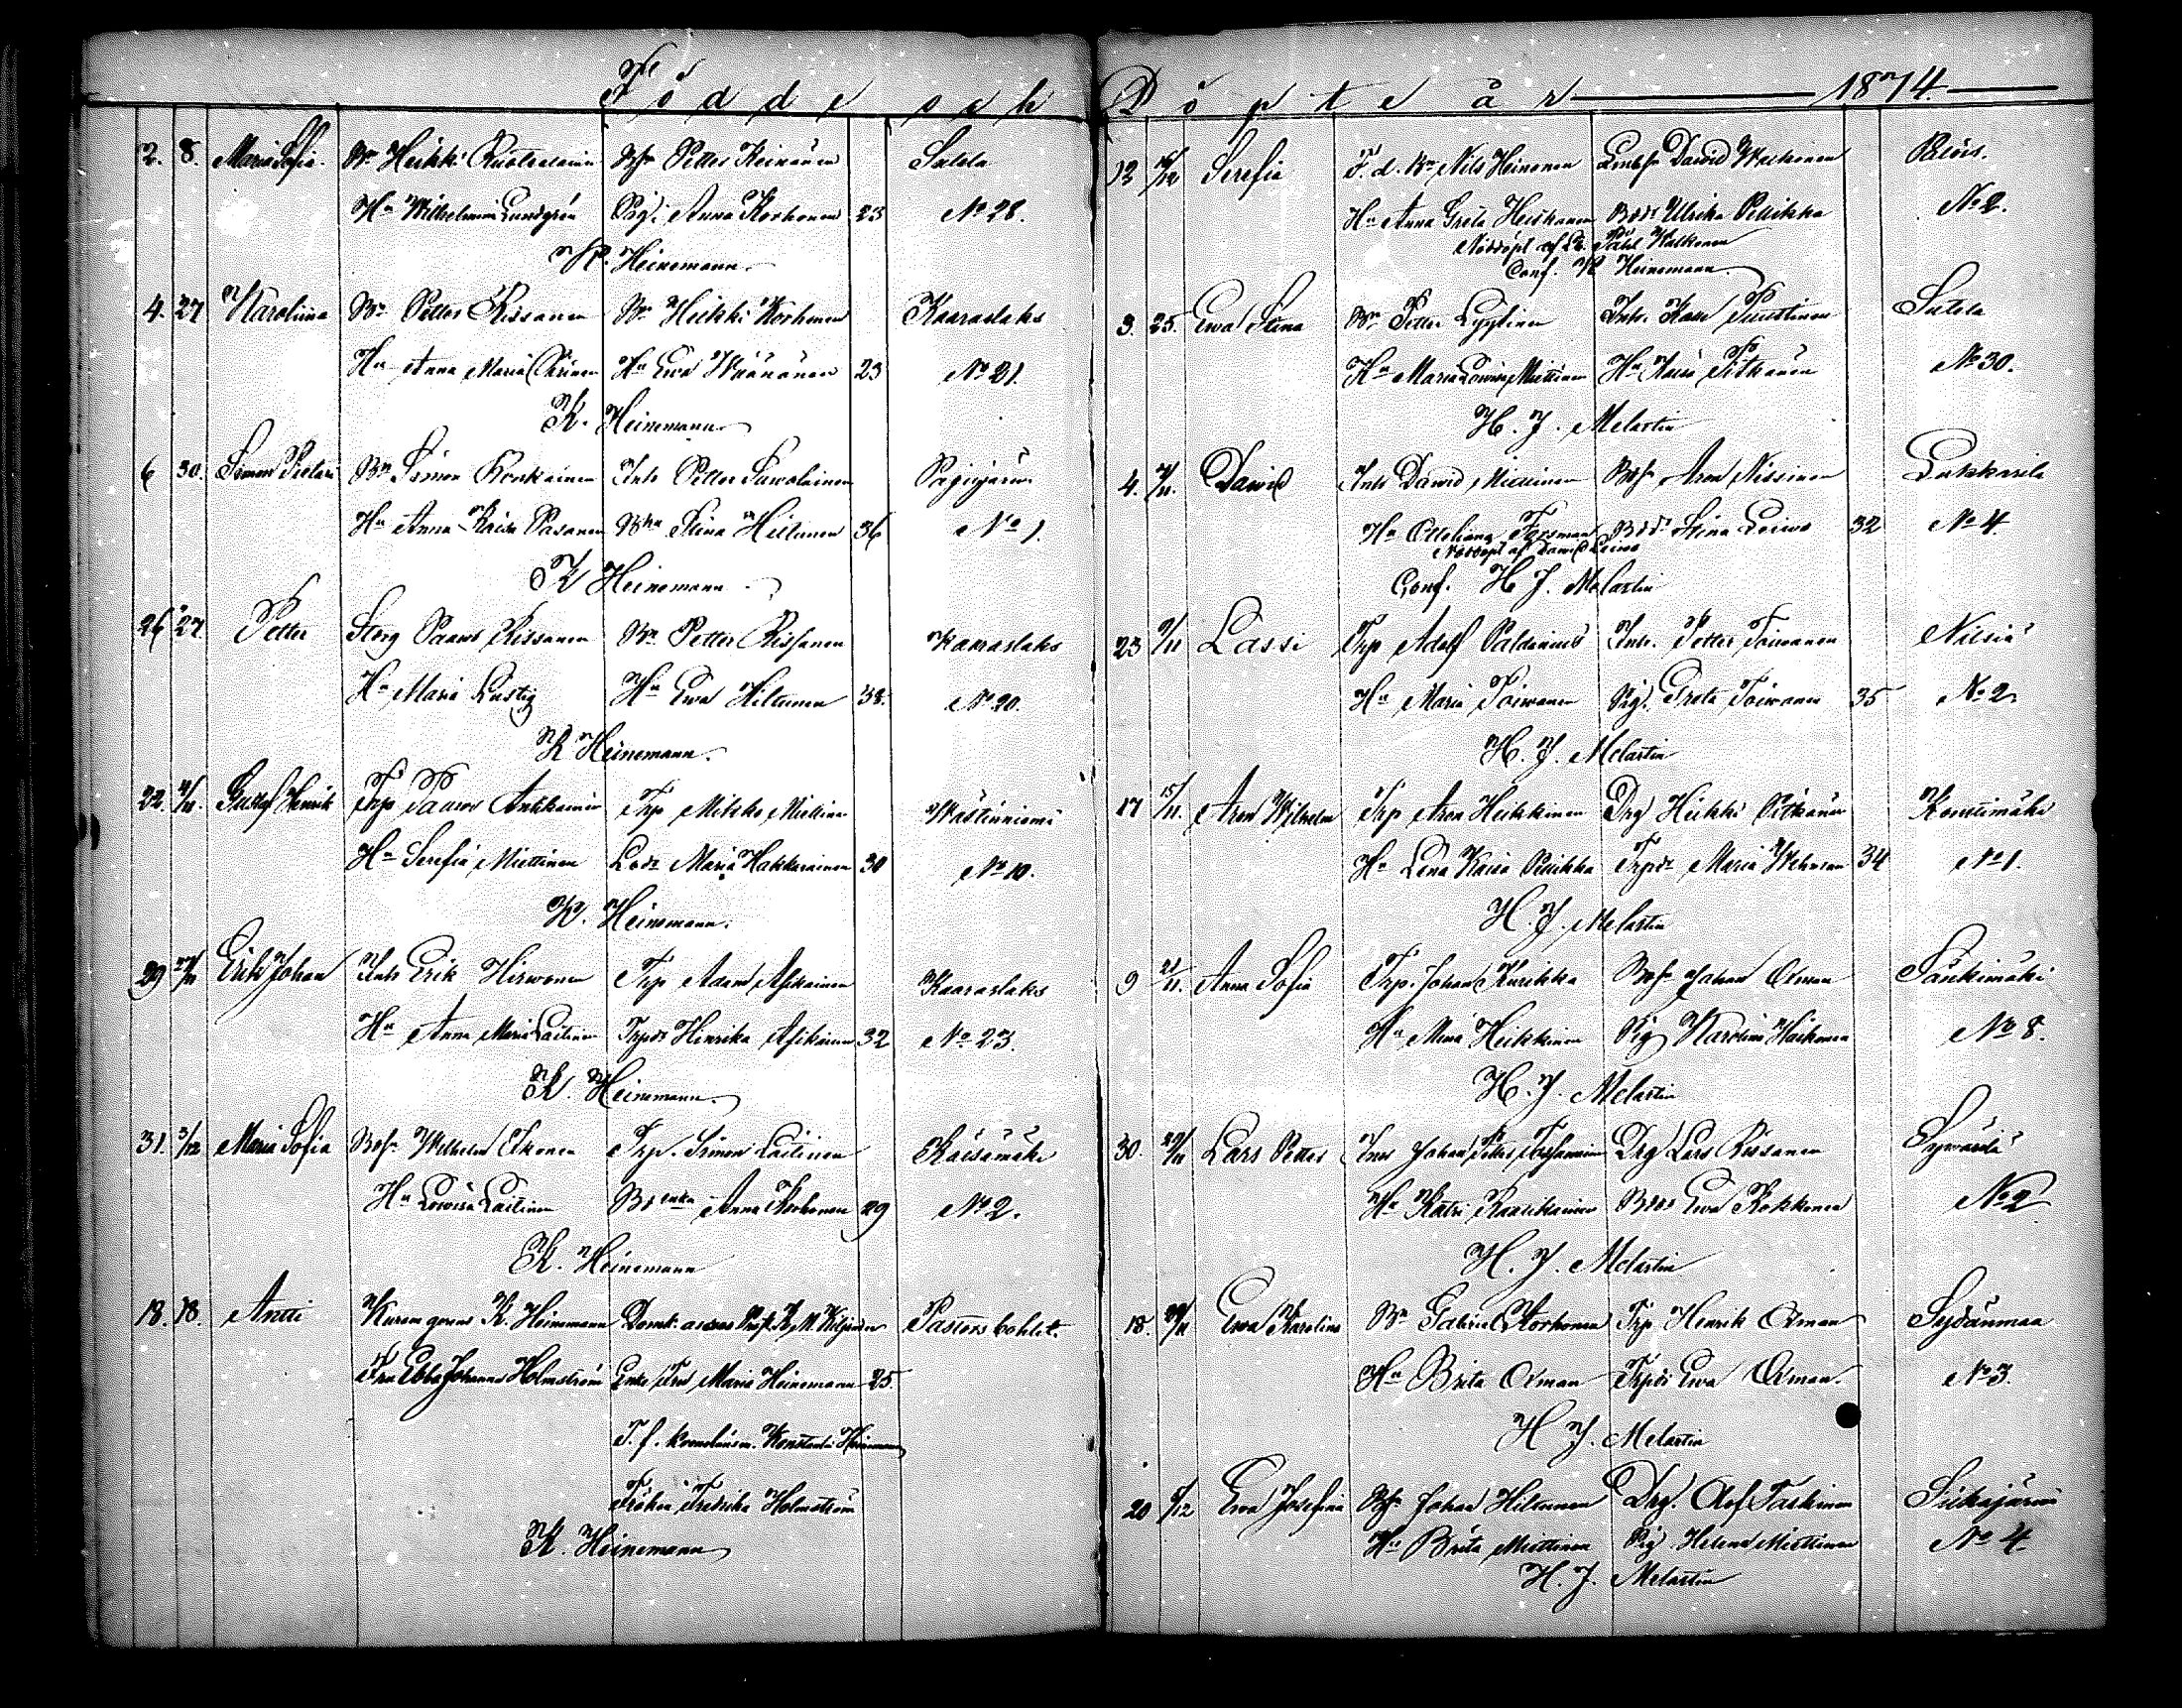 Födde och Döpte år 1874.
2. 8. Maria Sofia Bn Heikki Ruotsalainen Bsn Petter Keinänen Salela
Hu Wilhelmina Lundgrén Pig. Anna Korhonen 23 No 28.
K. Heinemann
4. 27 Karoliina Bn Petter Rissanen Bn Heikki Korhonen Kaaraslaks
Hu Anna Maria Hu Ewa Wäänänen 23 No 21.
K. Heinemann
6 30. Simon Pietari Bn Simon Inh Petter Sawolainen Pajujärwi
Hu Anna Kaisa Pasanen Stina Hiltunen 36 No 1.
K Heinemann
26 27 Petter Paawo Rissanen Bn Petter Rissanen Kaaraslaks
Hu Maria Lustig Hu Ewa Hiltunen 38. No 20.
K Heinemann.
22. 4/11. Gustaf Henrik Trp Paawo Antikainen Trp Mikko Miettinen Wästinniemi
Hu Serefia Miettinen Maria Hakkarainen 30 No 10.
K. Heinemann.
29 27/11 Erik Johan Inh Erik Hirwonen Trp Adam Asikainen Kaaraslaks
Hu Anna Maria Laitinen Trpdr Hinrika Asikainen 32 No 23.
K. Heinemann.
31. 3/12 Maria Sofia Wilhelm Eskonen Trp. Simon Laitinen Räisämäki
Hu Lowisa Laitinen Anna Korhonen 29 No 2.
K. Heinemann
18. 18. Antti K. Heinemann Pastorsbohlet.
Fru Ebba Johanna Holmström Enke Fru Maria Heinemann 25.
T. f. Konstantin Heinemann
Fröken Fredrika Holmström
K. Heinemann
12 Serefia F. d. Bn Nils Heinonen Dawid Palois.
Hu Anna Greta Heiskanen Bdr Ulrika Pellikka No 2.
Nöddöpt af
Conf. K Heinemann
3. 25. Ewa Stina Bn Petter Lyytinen Inh. Puustinen Salela
Hu Maria Lowisa Miettinen Hu Kaisa Pitkänen No 30.
H. J. Melartin
4. 7/11. Dawid Inh Dawid Miettinen Aron Nissinen Lukkarila
Hu Forsman Bdr Stina Leiwo 32 No 4.
Nöddöpt af Dawid Leiwo
Conf. H J. Melartin
23 9/11 Lassi Trp Adolf Paldanius Inh. Petter Toiwanen Nilsiä
Hu Maria Toiwanen Pig. Greta Toiwanen 35 No 2.
H. J. Melartin
17 15/11. Aron Wilhelm Trp Aron Heikkinen Drg Heikki Pitkänen Konttimäki
Hu Lena Kaisa Pellikka Trpdr Maria 34 No 1.
H. J. Melartin
9 21/11. Anna Sofia Trp. Johan Kurikka Johan Oxman Sänkimäki
Hu Mina Heikkinen Pig Karolina No 8.
H. J. Melartin
30. 29/11 Lars Petter Johan Petter Drg Lars Rissanen Sywärilä
Hu Katri Bdr Ewa Kokkonen No 2
H. J. Melartin
18. 29/11 Ewa Karolina Bn Gabriel Korhonen Trp Henrik Oxman Sydänmaa
Hu Brita Oxman Trpdr Ewa Oxman. No 3.
H J. Melartin
20 Ewa Josefina Johan Hiltunen Drg. Olof Taskinen Siikajärwi
Hu Brita Miettinen Pig Helena Miettinen No 4.
H. J. Melartin